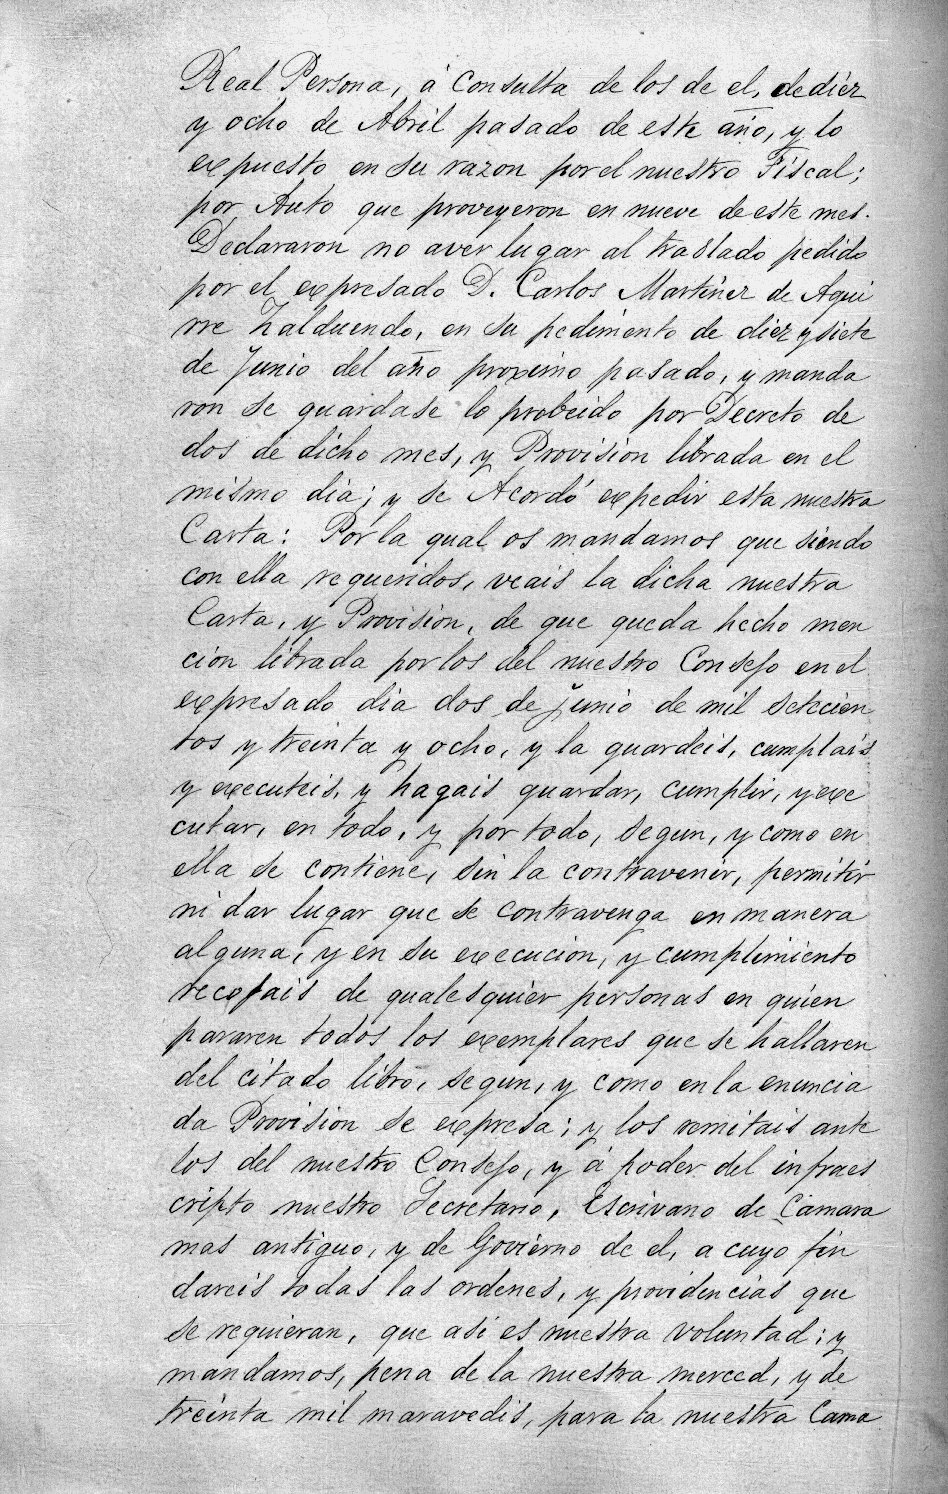 Real Persona, á consulta de los de el, de diez
y ocho de Abril pasado de este año, y lo
expuesto en su razon por el nuestro Fiscal;
por Auto que proveyeron en nueve de este mes.
Declararon no aver lugar al traslado pedido
por el expresado D. Carlos Martinez de Agui
rre Zalduendo, en su pedimento de diez y siete
de Junio del año proximo pasado, y manda
ron se guardase lo probeido por Decreto de
dos de dicho mes, y Provision librada en el
mismo dia; y se Acordó expedir esta nuestra
Carta: Por la qual os mandamos que siendo
con ella requeridos, veais la dicha nuestra
Carta, y Provision, de que queda hecho men
cion librada por los del nuestro Consejo en el
expresado dia dos de Junio de mil setecien
tos y treinta y ocho, y la guardeis, cumplais
y executeis, y hagais guardar, cumplir, y exe
cutar, en todo, y por todo, segun, y como en
ella se contiene, sin la contravenir, permitir
ni dar lugar que se contravenga en manera
alguna, y en su execucion, y cumplimiento
recojais de qualesquier personas en quien
pararen todos los exemplares que se hallaren
del citado libro, segun, y como en la enuncia
da Provision se expresa; y los remitais ante
los del nuestro Consejo, y á poder del infraes
cripto nuestro Secretario, Escrivano de Camara
mas antiguo, y de Govierno de el, a cuyo fin
dareis todas las ordenes, y providencias que
se requieran, que asi es nuestra voluntad; y
mandamos, pena de la nuestra merced, y de
treinta mil maravedis, para la nuestra Cama